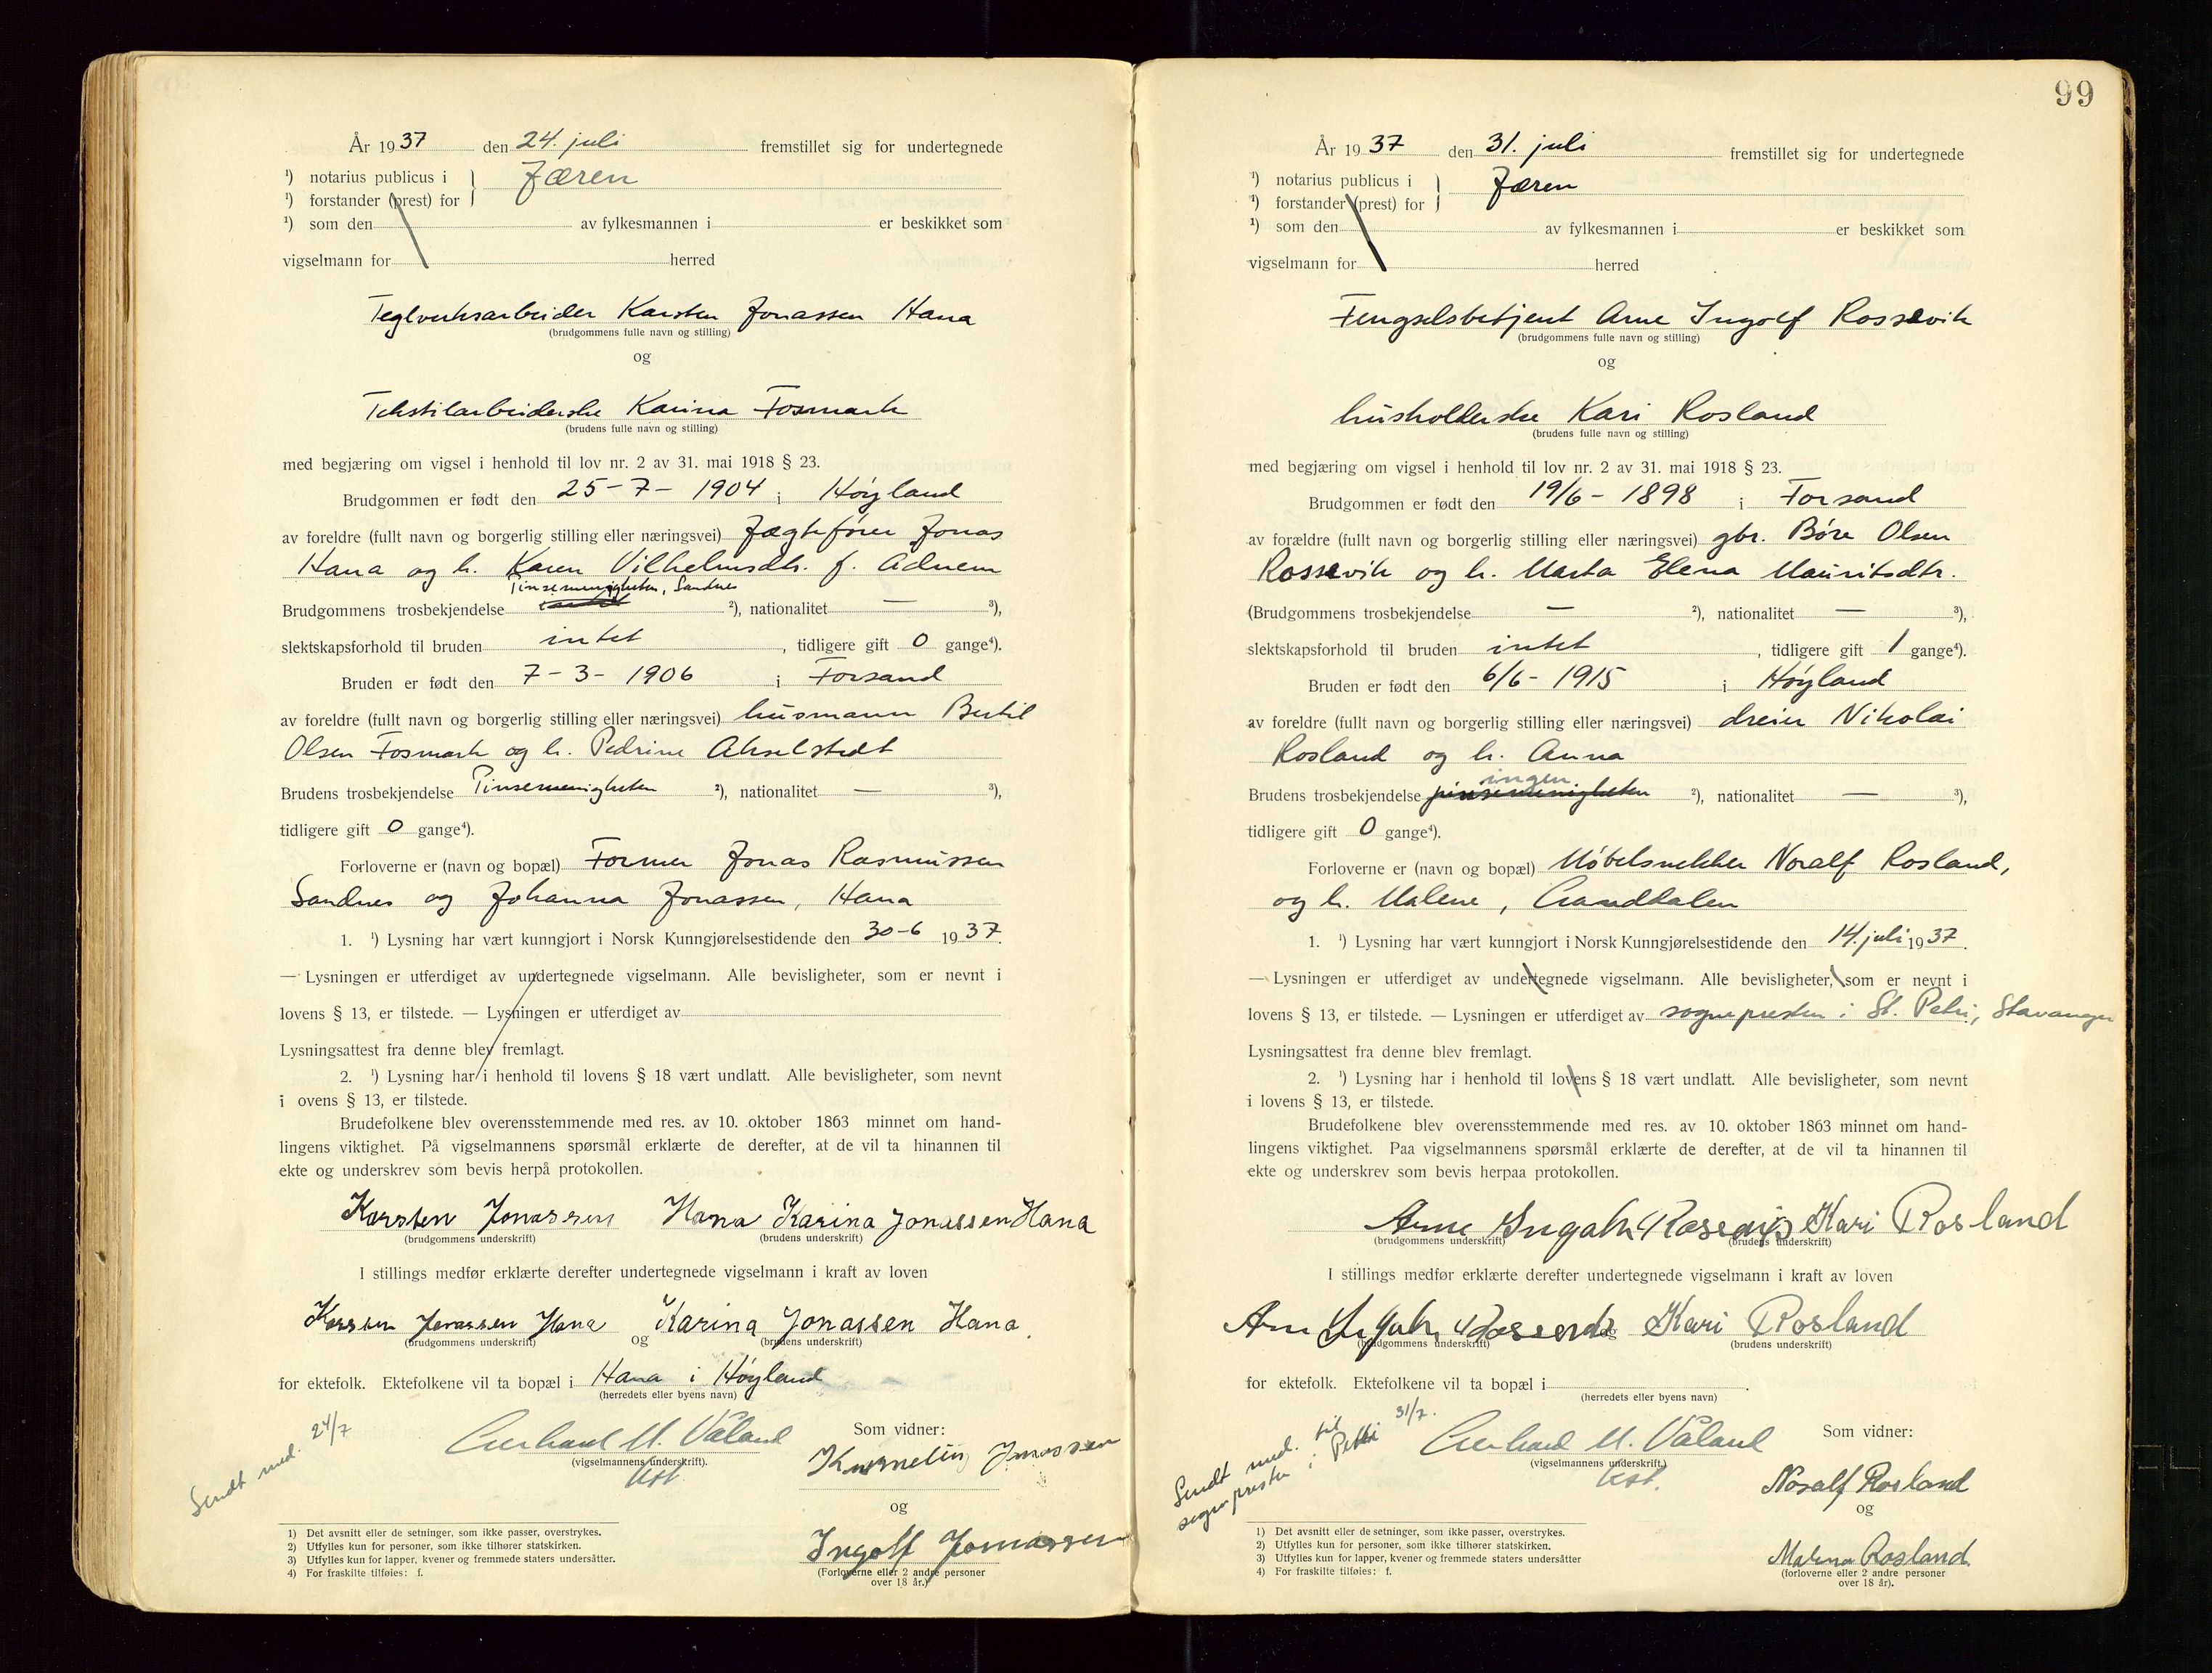 År 1937 den 24. juli fremstillet sig for undertegnede
¹) notarius publicus i } Jæren
¹) forstander (prest) for
¹) som den av fylkesmannen i er beskikket som
vigselmann for herred
Teglverksarbeider Karsten Jonassen Hana
(brudgommens fulle navn og stilling)
og
Tekstilarbeiderske Karina Fosmark
(brudens fulle navn og stilling)
med begjæring om vigsel i henhold til lov nr. 2 av 31. mai 1918 § 23.
Brudgommen er født den 25-7-1904 i Høyland
av foreldre (fullt navn og borgerlig stilling eller næringsvei) Jægtefører Jonas
Hana og h. Karen Vilhelmsdtr. f. Adnem
Pinsemenigheten, Sandnes
Brudgommens trosbekjendelse ²), nationalitet — ³),
slektskapsforhold til bruden intet, tidligere gift 0 gange⁴).
Bruden er født den 7-3-1906 i Forsand
av foreldre (fullt navn og borgerlig stilling eller næringsvei) husmann Bertil
Olsen Fosmark og h. Pedrine Akselstedt
Brudens trosbekjendelse Pinsemenigheten ²), nationalitet — ³),
tidligere gift 0 gange⁴).
Forloverne er (navn og bopæl) Former Jonas Rasmussen
Sandnes og Johanna Jonassen, Hana
1. ¹) Lysning har vært kunngjort i Norsk Kunngjørelsestidende den 30-6 1937.
— Lysningen er utferdiget av undertegnede vigselmann. Alle bevisligheter, som er nevnt i
lovens § 13, er tilstede. — Lysningen er utferdiget av
Lysningsattest fra denne blev fremlagt.
2. ¹) Lysning har i henhold til lovens § 18 vært undlatt. Alle bevisligheter, som nevnt
i ovens § 13, er tilstede.
Brudefolkene blev overensstemmende med res. av 10. oktober 1863 minnet om hand-
lingens viktighet. På vigselmannens spørsmål erklærte de derefter, at de vil ta hinannen til
ekte og underskrev som bevis herpå protokollen.
Karsten Jonassen Hana Karina Jonassen Hana
(brudgommens underskrift) (brudens underskrift)
I stillings medfør erklærte derefter undertegnede vigselmann i kraft av loven
Karsten Jonassen Hana og Karina Jonassen Hana.
(brudgommens underskrift) (brudens underskrift)
for ektefolk. Ektefolkene vil ta bopæl i Hana i Høyland
(herredets eller byens navn)
Sendt med. 24/7
Gerhard M. Våland
(vigselmannens underskrift).
Kst.
Som vidner:
Kornelius Jonassen
og
Ingolf Jonassen
(Forloverne eller 2 andre personer
over 18 år.)
1) Det avsnitt eller de setninger, som ikke passer, overstrykes.
2) Utfylles kun for personer, som ikke tilhører statskirken.
3) Utfylles kun for lapper, kvener og fremmede staters undersåtter.
4) For fraskilte tilføies: f.
99
År 1937 den 31. juli fremstillet sig for undertegnede
¹) notarius publicus i } Jæren
¹) forstander (prest) for
¹) som den av fylkesmannen i er beskikket som
vigselmann for herred
Fengselsbetjent Arne Ingolf Rossavik
(brudgommens fulle navn og stilling)
og
husholderske Kari Rosland
(brudens fulle navn og stilling)
med begjæring om vigsel i henhold til lov nr. 2 av 31. mai 1918 § 23.
Brudgommen er født den 19/6-1898 i Forsand
av forældre (fullt navn og borgerlig stilling eller næringsvei) gbr. Børe Olsen
Rossavik og h. Marta Elena Mauritsdtr.
(Brudgommens trosbekjendelse — ²), nationalitet — ³),
slektskapsforhold til bruden intet, tidligere gift 1 gange⁴).
Bruden er født den 6/6-1915 i Høyland
av foreldre (fullt navn og borgerlig stilling eller næringsvei) dreier Nikolai
Rosland og h. Anna
ingen
Brudens trosbekjendelse pinsemenigheten ²), nationalitet — ³),
tidligere gift 0 gange⁴).
Forloverne er (navn og bopæl) Møbelsnekker Noralf Rosland,
og h. Malene, Ganddalen
1. ¹) Lysning har vært kunngjort i Norsk Kunngjørelsestidende den 14. juli 1937.
— Lysningen er utferdiget av undertegnede vigselmann. Alle bevisligheter, som er nevnt i
lovens § 13, er tilstede. — Lysningen er utferdiget av sognepresten i St. Petri, Stavanger
Lysningsattest fra denne blev fremlagt.
2. ¹) Lysning har i henhold til lovens § 18 vært undlatt. Alle bevisligheter, som nevnt
i lovens § 13, er tilstede.
Brudefolkene blev overensstemmende med res. av 10. oktober 1863 minnet om hand-
lingens viktighet. Paa vigselmannens spørsmål erklærte de derefter, at de vil ta hinannen til
ekte og underskrev som bevis herpaa protokollen.
Arne Ingolf Rossavik Kari Rosland
(brudgommens underskrift) (brudens underskrift)
I stillings medfør erklærte derefter undertegnede vigselmann i kraft av loven
Arne Ingolf Rossavik og Kari Rosland
(brudgommens underskrift) (brudens underskrift)
for ektefolk. Ektefolkene vil ta bopæl i
(herredets eller byens navn)
Sendt med. til 31/7.
sognepresten i Petri
Gerhard M. Våland
(vigselmannens underskrift)
Kst.
Som vidner:
Noralf Rosland
og
Malena Rosland
(forloverne eller 2 andre personer
over 18 år).
1) Det avsnitt eller de setninger, som ikke passer, overstrykes.
2) Utfylles kun for personer, som ikke tilhører statskirken.
3) Utfylles kun for lapper, kvener og fremmede staters undersåtter
4) For fraskilte tilføies: f.